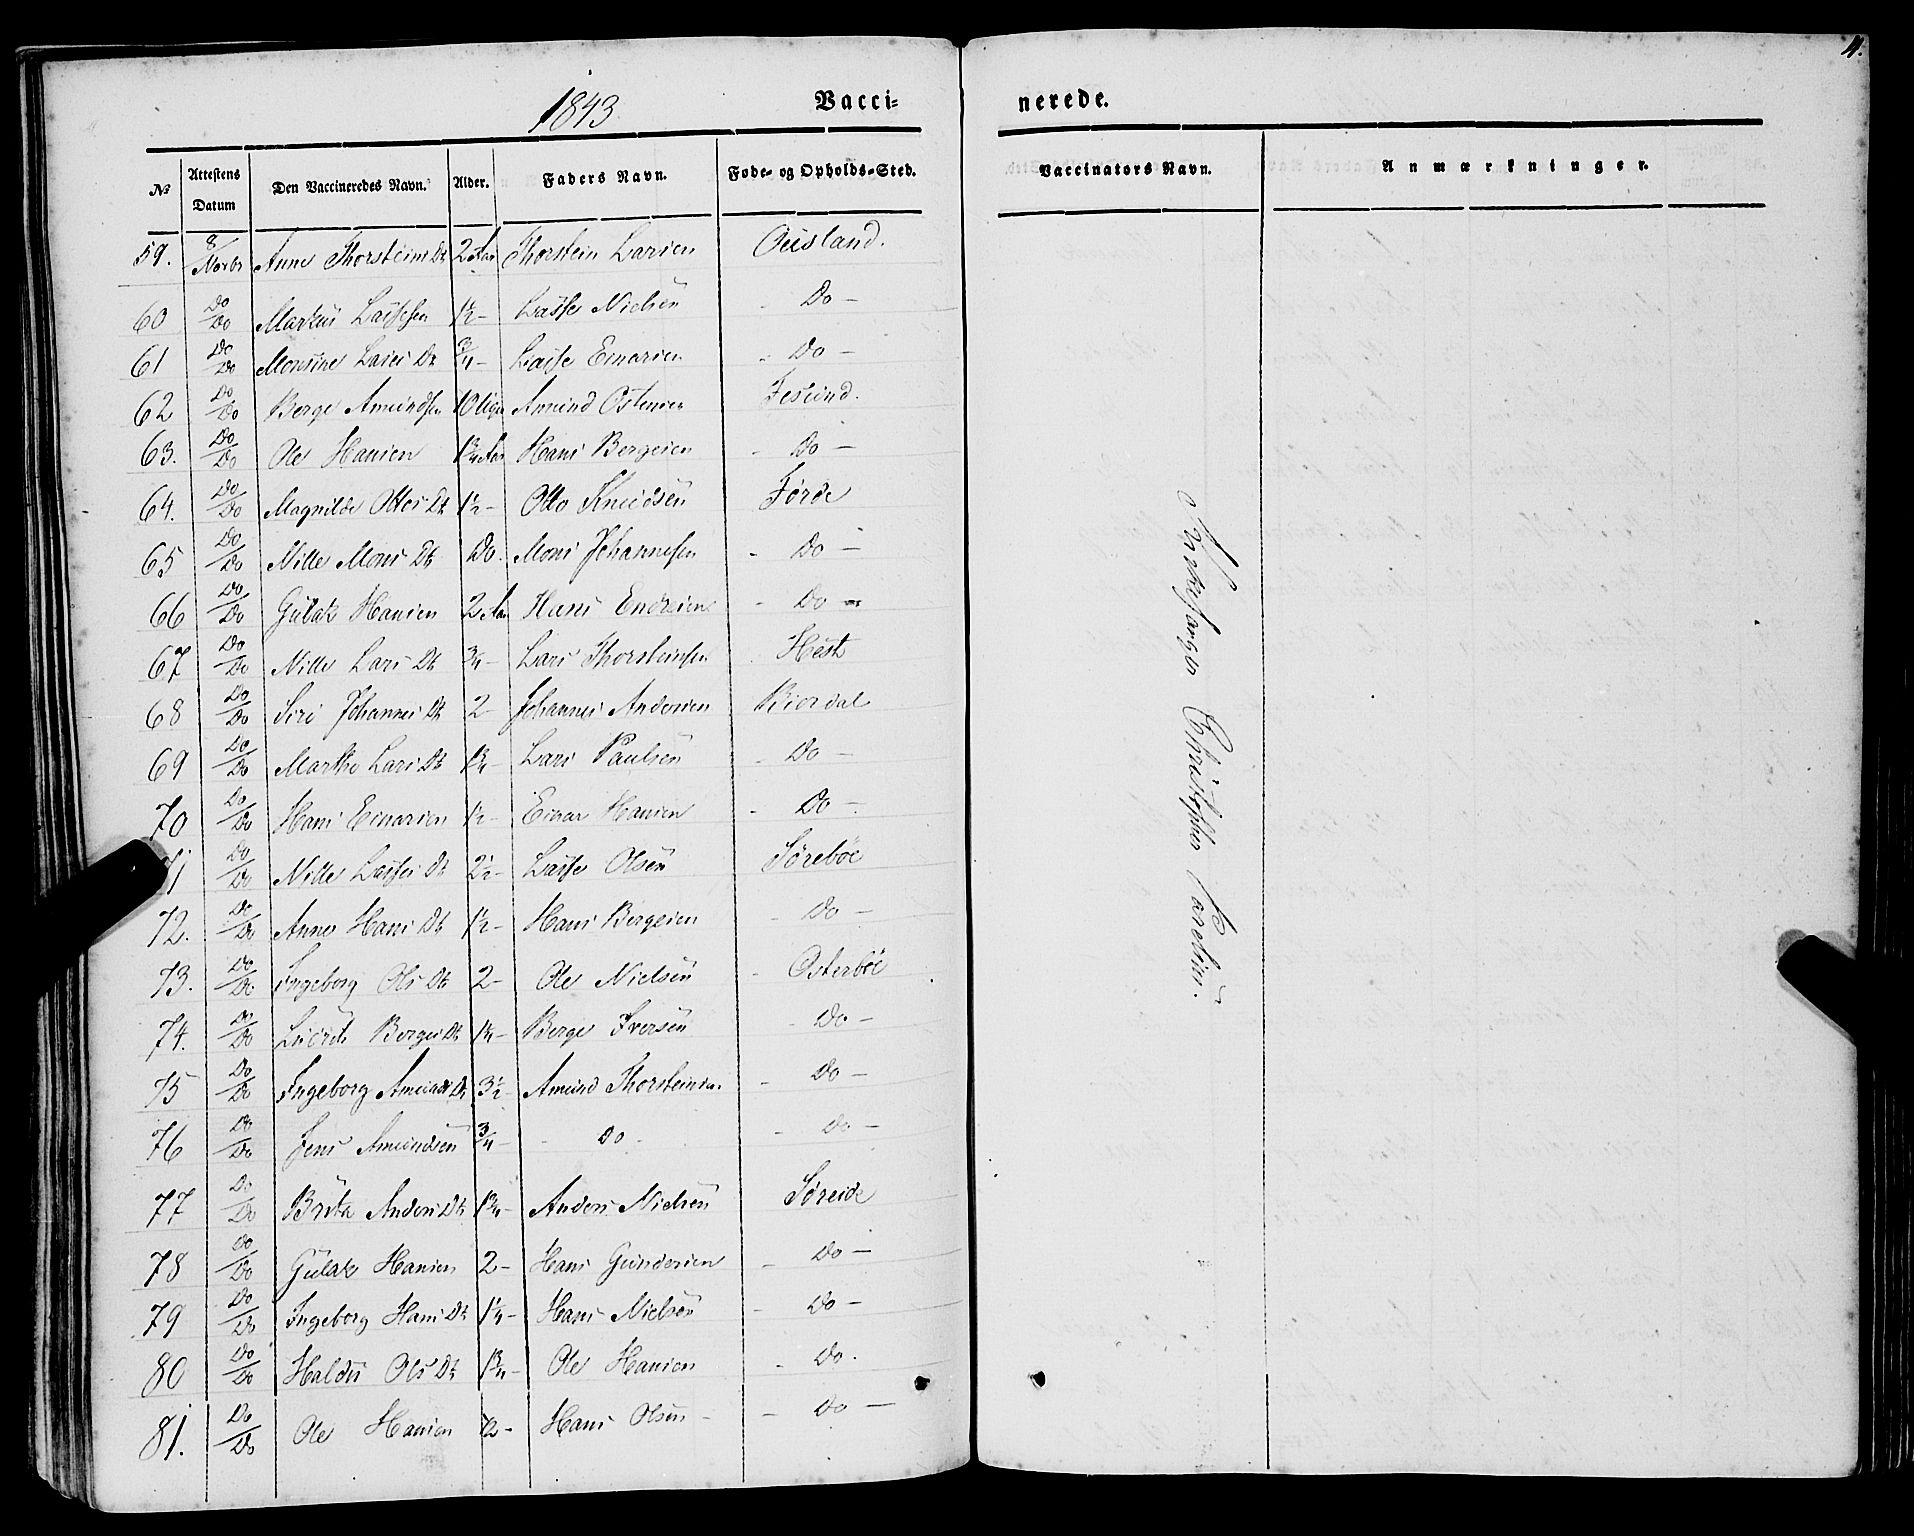 4.
1843.
Vacci- nerede.
No Attestens Datum Den Vaccineredes Navn. Alder. Faders Navn. Føde- og Opholds-Sted. Vaccinators Navn. Anmærkninger.
59. 8/Novbr Anne Thorsteins Dt 2 Aar Thorstein Larsen Ousland.
60 Do/Do Markus Lassesen 1½ - Lasse Nielsen - Do -
61 Do/Do Monsine Lasses Dt ¾ - Lasse Einarsen - Do -
62 Do/Do Berge Amundsen 10 Uger Amund Ostensen Tesiund.
63. Do/Do Ole Hansen 1¾ Aar Hans Bergesen - Do -
64. Do/Do Magnilde Ottos Dt 1½ - Otto Knudsen Førde
65 Do/Do Nille Mons Dt Do. Mons Johannesen - Do -
66 Do/Do Gulak Hansen 2 Aar Hans Endresen - Do -
67 Do/Do Nille Lars Dt ¾ - Lars Thorsteinsen Hest
68 Do/Do Siri Johannes Dt 2 - Johannes Andersen Biordal
69 Do/Do Marthe Lars Dt 1¾ - Lars Paulsen - Do -
70 Do/Do Hans Einarsen 1½ - Einar Hansen - Do -
71 Do/Do Nille Lasses Dt 2½ - Lasse Olsen Sørebøe
72. Do/Do Anne Hans Dt 1½ - Hans Bergesen - Do -
73. Do/Do Ingeborg Ols Dt 2 - Ole Nielsen - Osterbøe
74. Do/Do Berges Dt 1¾ - Berge Iversen - Do -
75 Do/Do Ingeborg Amunds Dt 3½ - Amund Thorsteinsen - Do -
76 Do/Do Jens Amundsen ¾ - - Do - - Do -
77 Do/Do Brita Anders Dt 1¾ - Anders Nielsen Søreide
78 Do/Do Gulak Hansen 2 - Hans Gundersen - Do -
79 Do/Do Ingeborg Hans Dt 1¼ - Hans Nielsen - Do -
80 Do/Do Haldis Ols Dt 1¾ - Ole Hansen - Do.
81. Do/Do Ole Hansen ½ - Hans Olsen - - Do -
Kirkesanger Christopher